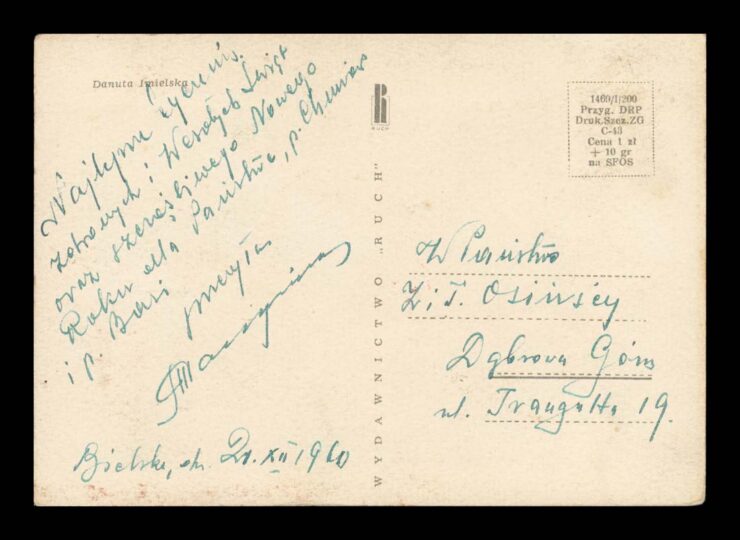 Danuta Imielska
Najlepsze życzenia
zdrowych i Wesołych Świąt
oraz szczęśliwego Nowego
Roku dla Państwa, p.
i p. Basi
Bielsko, dn. 21.XII 1960
RUCH
WYDAWNICTWO „RUCH”
1460/I/200
Przyg. DRP
Druk. Szcz. ZG
C-43
Cena 1 zł
+ 10 gr
na SFOS
W Państwo
Z. i T. Osińscy
Dąbrowa Górn
ul. Traugutta 19.